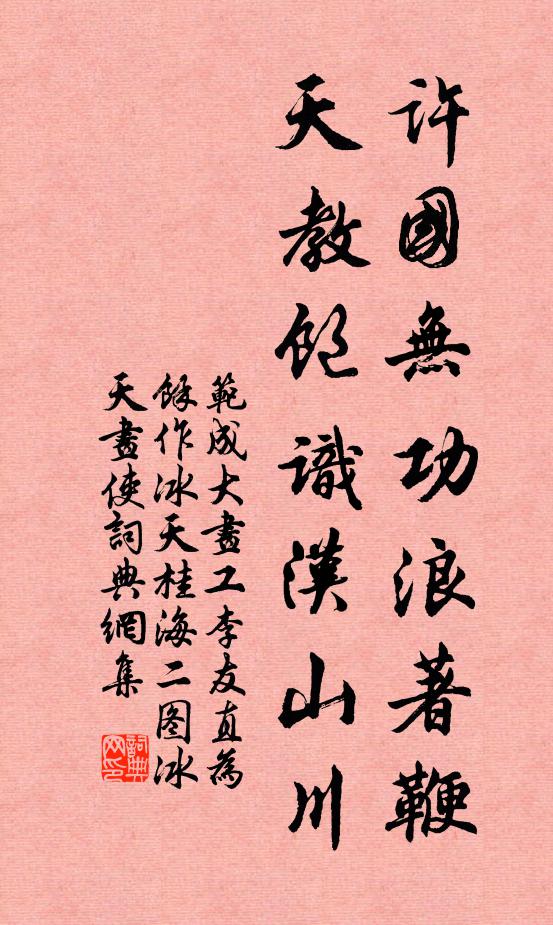 許國無功浪著鞭
天教飽識漢山川
範成大畫工李友直為
餘作冰天桂海二图冰
天畫使詞典網集
詞典网印